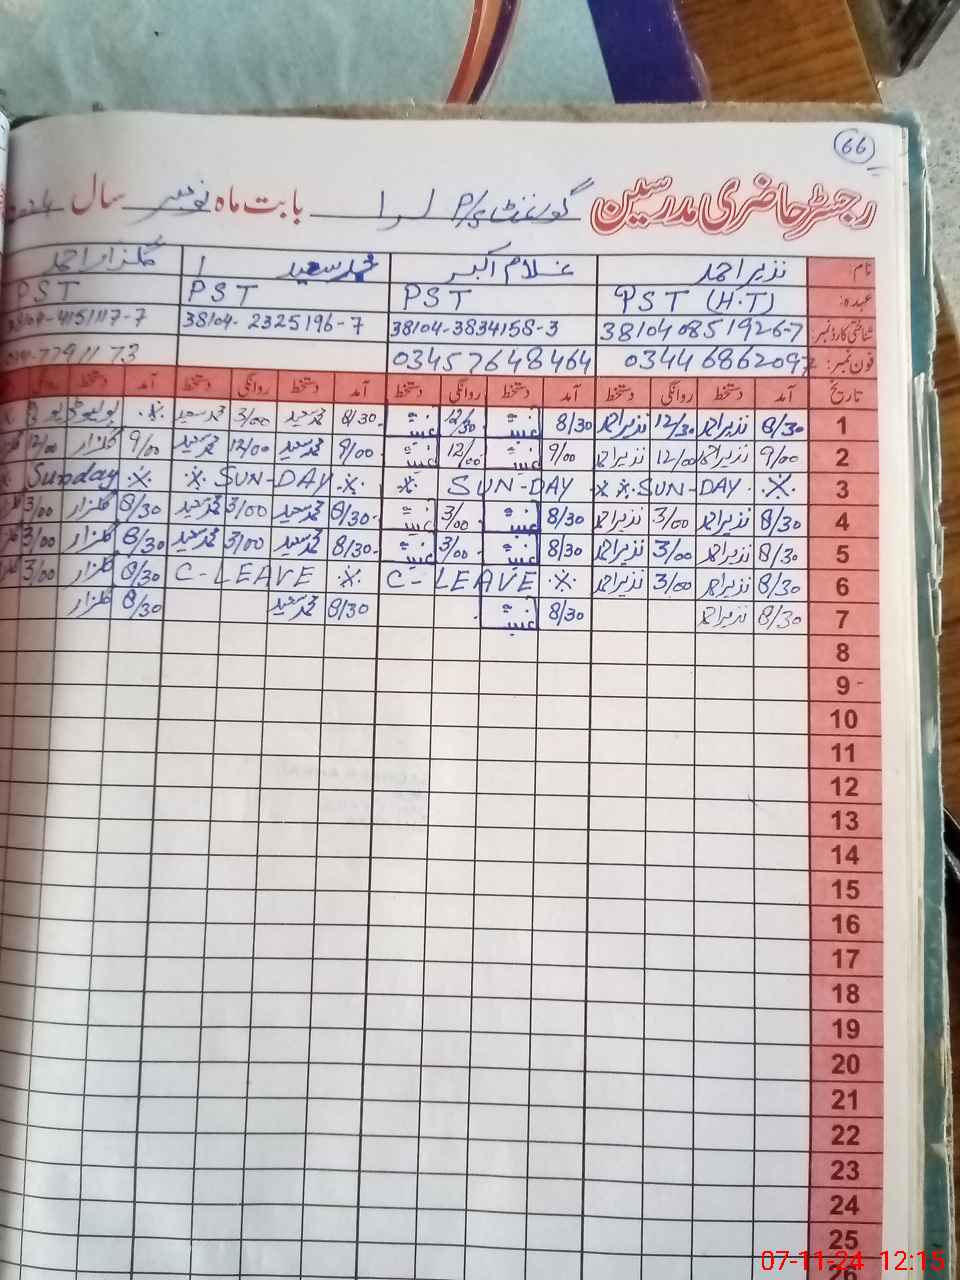 66
رجسٹر حاضری مدرسین گورنمنٹ P/S لوا بابت ماہ نومبر سال
نام: نذیر احمد غلام اکبر محمد سعید گلزار احمد
عہدہ: PST (H.T) PST PST PST
شناختی کارڈ نمبر: 38104 0851926-7 38104-3834158-3 38104-2325196-7
فون نمبر: 03446862097 03457648464
تاریخ آمد دستخط روانگی دستخط آمد دستخط روانگی دستخط آمد دستخط روانگی دستخط آمد دستخط روانگی
1 8/30 نذیر احمد 12/30 نذیر احمد 8/30 12/30 8/30 محمد سعید 3/00 محمد سعید
2 9/00 نذیر احمد 12/00 نذیر احمد 9/00 12/00 9/00 محمد سعید 12/00 محمد سعید 9/00 گلزار 12/00
3 SUN-DAY SUN-DAY SUN-DAY Sunday
4 8/30 نذیر احمد 3/00 نذیر احمد 8/30 3/00 8/30 محمد سعید 3/00 محمد سعید 8/30 گلزار 3/00
5 8/30 نذیر احمد 3/00 نذیر احمد 8/30 3/00 8/30 محمد سعید 3/00 محمد سعید 8/30 گلزار 3/00
6 8/30 نذیر احمد 3/00 نذیر احمد C-LEAVE C-LEAVE 8/30 گلزار 3/00
7 8/30 نذیر احمد 8/30 8/30 محمد سعید 8/30 گلزار
8
9
10
11
12
13
14
15
16
17
18
19
20
21
22
23
24
25
26
07-11-24 12:15